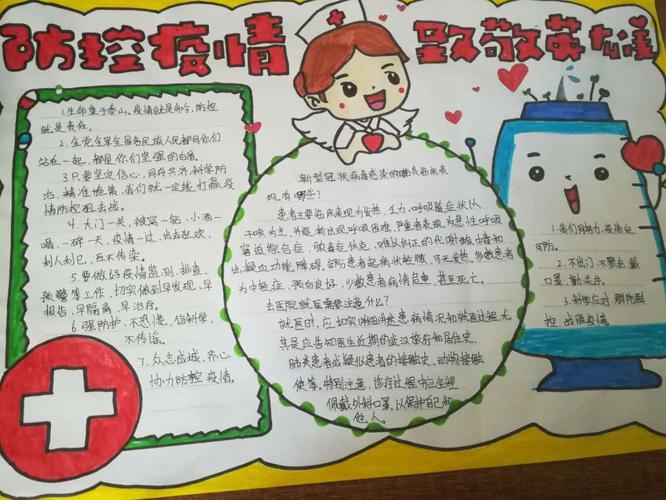 防控疫情 致敬英雄
1.生命重于泰山,疫情就是命令,防控
就是责任。
2.全党全军全国各族人民都同你们
站在一起,都是你们坚强的后盾。
3只要坚定信心,同舟共济,科学防
治,精准施策,我们就一定能打赢疫
情防控阻击战。
4.大门一关,被窝一钻,小酒一
喝,一碎一天,疫情一过,出去狂欢,
利人利已,互不传染。
5.要做好疫情监测,排查,
预警等工作,切实做到早发现,早
报告,早隔离,早治疗。
6强防护,不恐慌,信科学,
不传谣。
7.众志成城,齐心
协力防控疫情。
新型冠状病毒感染的肺炎临床表
现有哪些?
患者主要临床表现为发热,乏力,呼吸道症状以
干咳为主,并逐渐出现呼吸困难,严重者表现为急性呼吸
窘迫综合征,脓毒症休克,难以纠正的代谢酸中毒和
出凝血功能障碍,部分患者起病状轻微,可无发热,多数患者
为中轻症,预后良好,少数患者病情危重,甚至死亡。
去医院就医需要注意什么?
就医时,应如实详细讲述患病情况和就医过程,尤
其是应告知医生近期的武汉旅行和居住史,
肺炎患者或疑似患者的接触史,动物接触
使等。特别注意,诊疗过程中应全程
佩戴外科口罩,以保护自己和
他人。
1.我们同努力,疫情定
可防。
2.不出门不聚会戴
口罩勤洗手
3.科学应对,联防联
控,战胜疫情